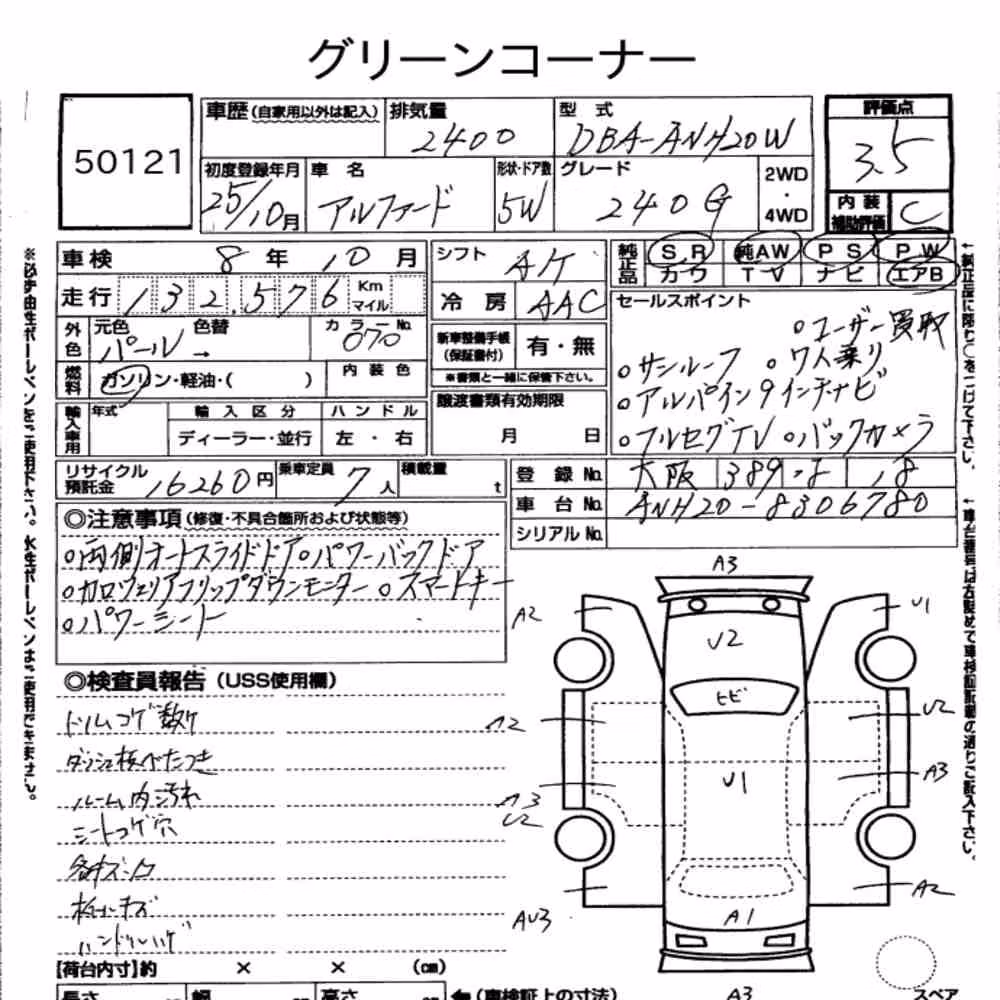 グリーンコーナー
50121
車歴(自家用以外は記入) 排気量 2400 型式 DBA-ANH20W
評価点 3.5
初度登録年月 25/10月 車名 アルファード 形状・ドア数 5W グレード 240G 2WD・4WD
内装補助評価 C
車検 8年10月 シフト AT
走行 132,576 Km マイル 冷房 AAC
純正品 SR 純AW PS PW
カワ TV ナビ エアB
外色 元色 パール 色替 → カラーNo. 070
新車整備手帳(保証書付) 有・無
※書類と一緒に保管下さい。
燃料 ガソリン・軽油・( ) 内装色
セールスポイント
○ユーザー買取
○サンルーフ ○7人乗り
○アルパイン9インチナビ
○フルセグTV ○バックカメラ
輸入車用 年式 輸入区分 ハンドル
ディーラー・並行 左・右
譲渡書類有効期限
月 日
リサイクル預託金 16260円 乗車定員 7人 積載量 t
登録No. 大阪 389 18
車台No. ANH20-8306780
シリアルNo.
◎注意事項(修復・不具合箇所および状態等)
○両側オートスライドドア○パワーバックドア
○カロツェリアフリップダウンモニター ○スマートキー
○パワーシート
◎検査員報告(USS使用欄)
ドリムコゲ数ケ
ダッシュ板べたつき
ルーム内汚れ
シートコゲ穴
ハンドルハゲ
A3
A2
U1
U2
ヒビ
A2
U2
U1
A3
A3
U2
A2
AU3
A1
A3
【荷台内寸】約 × × (cm)
長さ 幅 高さ (車検証上の寸法) スペア
※必ず油性ボールペンをご使用下さい。水性ボールペンはご使用できません。
↑純正品に限り○をつけて下さい。
↑車台番号は右詰めで車検証記載の通りご記入下さい。